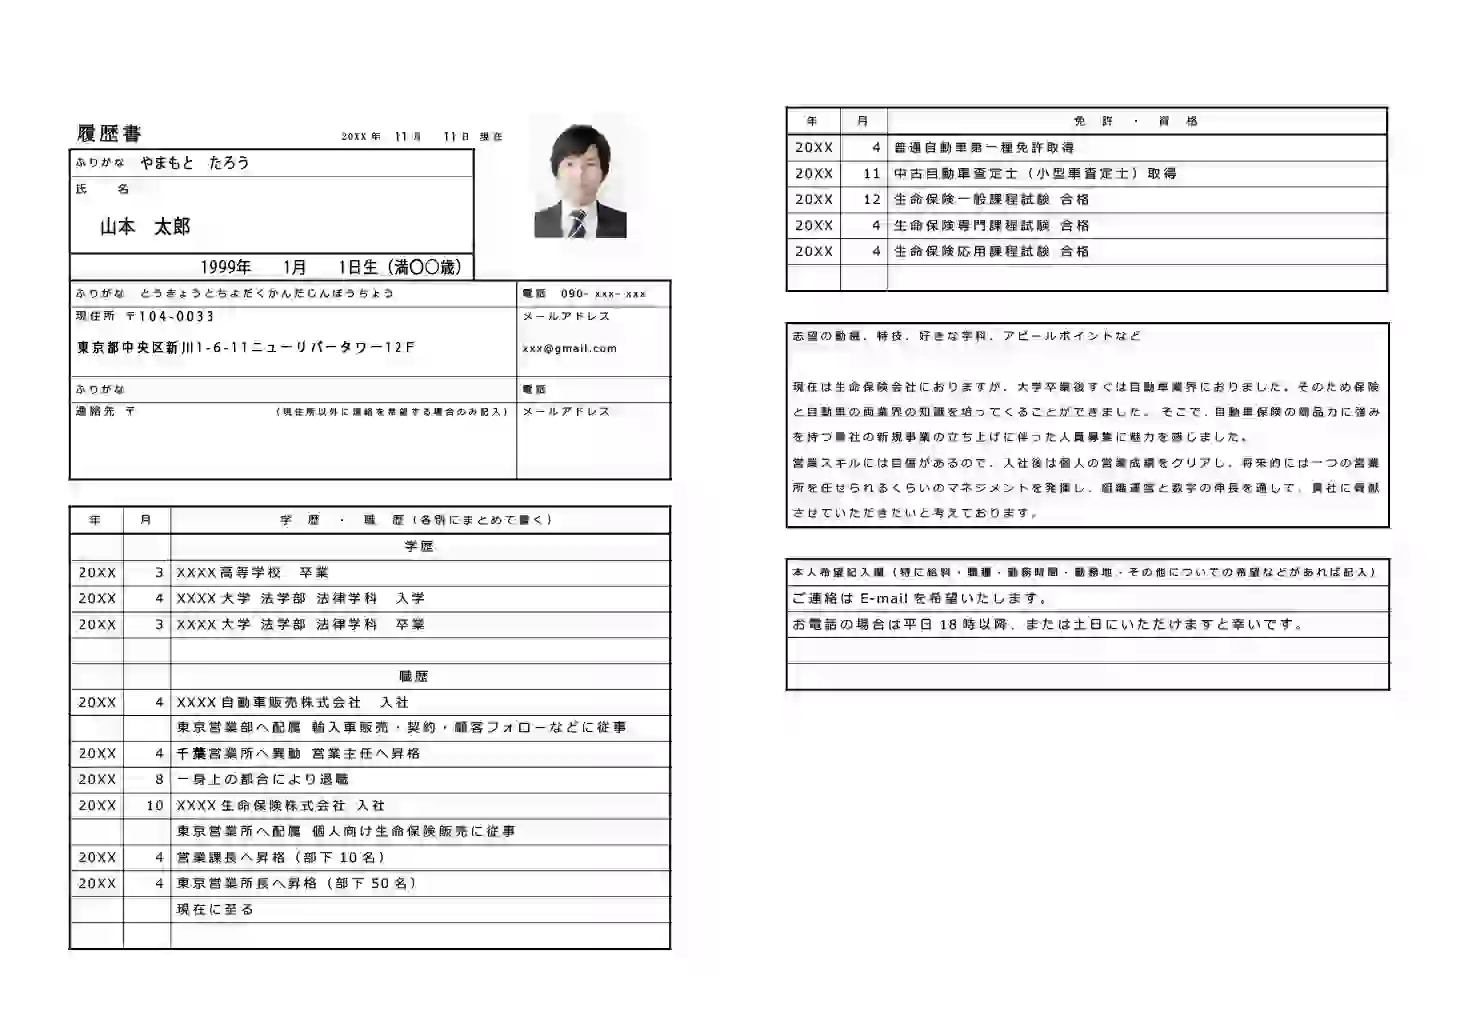 履歴書
20XX 年 11 月 11 日 現在
ふりがな やまもと たろう
氏 名
山本 太郎
1999年 1月 1日生（満〇〇歳）
ふりがな とうきょうとちよだくかんだじんぼうちょう
電話 090- xxx- xxx
現住所 〒104-0033
メールアドレス
東京都中央区新川1-6-11ニューリバータワー12F
xxx@gmail.com
ふりがな
電話
連絡先 〒 （現住所以外に連絡を希望する場合のみ記入）
メールアドレス
年 月 学 歴 ・ 職 歴（各別にまとめて書く）
学歴
20XX 3 XXXX高等学校 卒業
20XX 4 XXXX大学 法学部 法律学科 入学
20XX 3 XXXX大学 法学部 法律学科 卒業
職歴
20XX 4 XXXX自動車販売株式会社 入社
東京営業部へ配属 輸入車販売・契約・顧客フォローなどに従事
20XX 4 千葉営業所へ異動 営業主任へ昇格
20XX 8 一身上の都合により退職
20XX 10 XXXX生命保険株式会社 入社
東京営業所へ配属 個人向け生命保険販売に従事
20XX 4 営業課長へ昇格（部下10名）
20XX 4 東京営業所長へ昇格（部下50名）
現在に至る
年 月 免 許 ・ 資 格
20XX 4 普通自動車第一種免許取得
20XX 11 中古自動車査定士（小型車査定士）取得
20XX 12 生命保険一般課程試験 合格
20XX 4 生命保険専門課程試験 合格
20XX 4 生命保険応用課程試験 合格
志望の動機、特技、好きな学科、アピールポイントなど
現在は生命保険会社におりますが、大学卒業後すぐは自動車業界におりました。そのため保険
と自動車の両業界の知識を培ってくることができました。 そこで、自動車保険の商品力に強み
を持つ貴社の新規事業の立ち上げに伴った人員募集に魅力を感じました。
営業スキルには自信があるので、入社後は個人の営業成績をクリアし、将来的には一つの営業
所を任せられるくらいのマネジメントを発揮し、組織運営と数字の伸長を通して、貴社に貢献
させていただきたいと考えております。
本人希望記入欄（特に給料・職種・勤務時間・勤務地・その他についての希望などがあれば記入）
ご連絡は E-mail を希望いたします。
お電話の場合は平日 18 時以降、または土日にいただけますと幸いです。